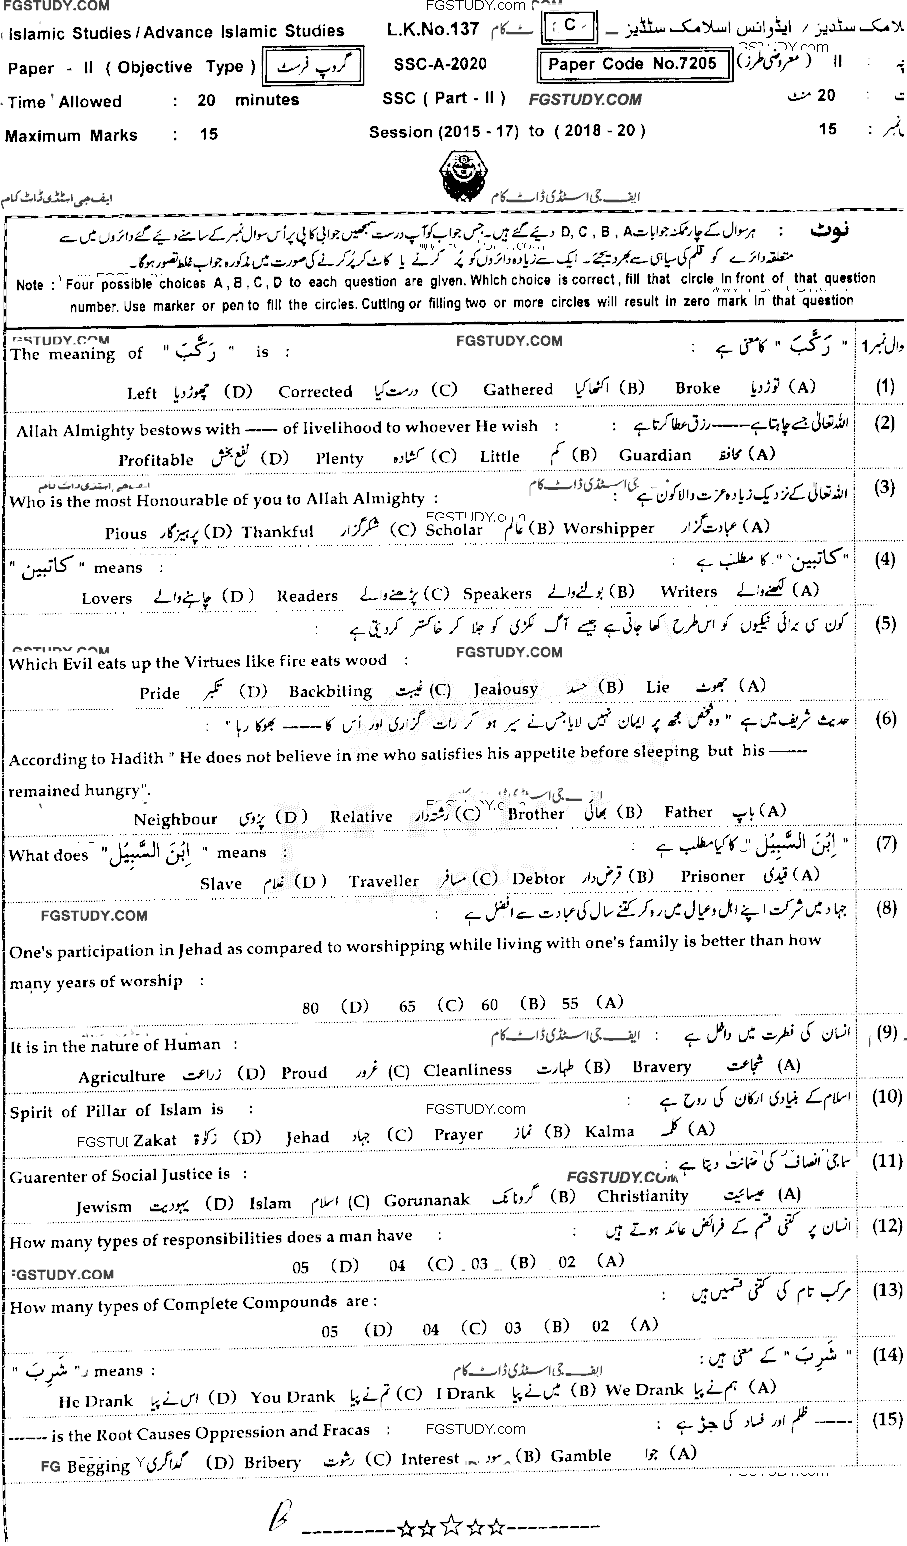 FGSTUDY.COM FGSTUDY.com COM
Islamic Studies / Advance Islamic Studies L.K.No.137 ٹ کام ( C ) لامک سٹڈیز / ایڈوانس اسلامک سٹڈیز
Paper - II ( Objective Type ) گروپ فرسٹ SSC-A-2020 Paper Code No.7205 (معروضی طرز) II
Time Allowed : 20 minutes SSC ( Part - II ) FGSTUDY.COM 20 منٹ :
Maximum Marks : 15 Session (2015 - 17) to ( 2018 - 20 ) 15 :
ایف جی اسٹڈی ڈاٹ کام ایف جی اسٹڈی ڈاٹ کام
نوٹ : ہر سوال کے چار ممکنہ جوابات D, C, B, A دیے گئے ہیں۔ جس جواب کو آپ درست سمجھیں جوابی کاپی پر اُس سوال نمبر کے سامنے دیے گئے دائروں میں سے
متعلقہ دائرے کو قلم کی سیاہی سے بھر دیجئے۔ ایک سے زیادہ دائروں کو پُر کرنے یا کاٹ کر پُر کرنے کی صورت میں مذکورہ جواب غلط تصور ہوگا۔
Note : Four possible choices A , B , C , D to each question are given. Which choice is correct , fill that circle in front of that question
number. Use marker or pen to fill the circles. Cutting or filling two or more circles will result in zero mark in that question
FGSTUDY.COM
The meaning of " رَكَّبَ " is : " رَكَّبَ " کا معنی ہے : وال نمبر 1
Left چھوڑ دیا (D) Corrected درست کیا (C) Gathered اکٹھا کیا (B) Broke توڑ دیا (A) (1)
Allah Almighty bestows with —— of livelihood to whoever He wish : اللہ تعالیٰ جسے چاہتا ہے —— رزق عطا کرتا ہے : (2)
Profitable نفع بخش (D) Plenty کشادہ (C) Little کم (B) Guardian محافظ (A)
Who is the most Honourable of you to Allah Almighty : اللہ تعالیٰ کے نزدیک زیادہ عزت والا کون ہے : (3)
FGSTUDY.com
Pious پرہیزگار (D) Thankful شکرگزار (C) Scholar عالم (B) Worshipper عبادت گزار (A)
" كاتبين " means : "كاتبين" کا مطلب ہے : (4)
Lovers چاہنے والے (D) Readers پڑھنے والے (C) Speakers بولنے والے (B) Writers لکھنے والے (A)
کون سی برائی نیکیوں کو اس طرح کھا جاتی ہے جیسے آگ لکڑی کو جلا کر خاکستر کر دیتی ہے : (5)
FGSTUDY.COM
Which Evil eats up the Virtues like fire eats wood :
Pride تکبر (D) Backbiling غیبت (C) Jealousy حسد (B) Lie جھوٹ (A)
حدیث شریف میں ہے " وہ شخص مجھ پر ایمان نہیں لایا جس نے سیر ہو کر رات گزاری اور اُس کا —— بھوکا رہا " : (6)
According to Hadith " He does not believe in me who satisfies his appetite before sleeping but his ——
remained hungry".
Neighbour پڑوسی (D) Relative رشتہ دار (C) Brother بھائی (B) Father باپ (A)
What does " اِبْنَ السَّبِيْل " means : " اِبْنَ السَّبِيْل " کا کیا مطلب ہے : (7)
Slave غلام (D) Traveller مسافر (C) Debtor قرض دار (B) Prisoner قیدی (A)
FGSTUDY.COM جہاد میں شرکت اپنے اہل و عیال میں رہ کر کتنے سال کی عبادت سے افضل ہے : (8)
One's participation in Jehad as compared to worshipping while living with one's family is better than how
many years of worship :
80 (D) 65 (C) 60 (B) 55 (A)
It is in the nature of Human : ایف جی اسٹڈی ڈاٹ کام انسان کی فطرت میں داخل ہے : (9)
Agriculture زراعت (D) Proud غرور (C) Cleanliness طہارت (B) Bravery شجاعت (A)
Spirit of Pillar of Islam is : FGSTUDY.com اسلام کے بنیادی ارکان کی روح ہے : (10)
FGSTUI Zakat زکوٰۃ (D) Jehad جہاد (C) Prayer نماز (B) Kalma کلمہ (A)
Guarenter of Social Justice is : FGSTUDY.COM سماجی انصاف کی ضمانت دیتا ہے : (11)
Jewism یہودیت (D) Islam اسلام (C) Gorunanak گرونانک (B) Christianity عیسائیت (A)
How many types of responsibilities does a man have : انسان پر کتنی قسم کے فرائض عائد ہوتے ہیں : (12)
FGSTUDY.COM 05 (D) 04 (C) 03 (B) 02 (A)
How many types of Complete Compounds are : مرکب تام کی کتنی قسمیں ہیں : (13)
05 (D) 04 (C) 03 (B) 02 (A)
" شَرِبَ " means : ایف جی اسٹڈی ڈاٹ کام " شَرِبَ " کے معنی ہیں : (14)
He Drank اس نے پیا (D) You Drank تم نے پیا (C) I Drank میں نے پیا (B) We Drank ہم نے پیا (A)
------ is the Root Causes Oppression and Fracas : FGSTUDY.com ----- ظلم اور فساد کی جڑ ہے : (15)
FG Begging گداگری (D) Bribery رشوت (C) Interest سود (B) Gamble جوا (A)
----------☆☆☆☆☆----------